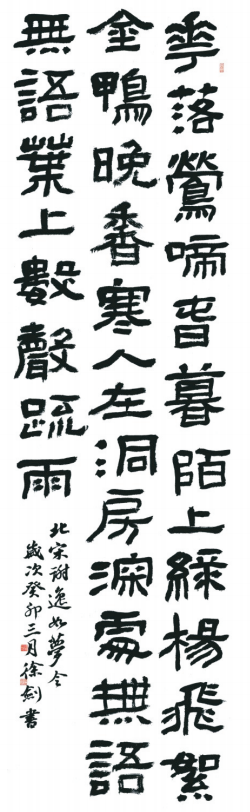 花落鶯啼春暮陌上緑楊飛絮
金鴨晚香寒人在洞房深處無語
無語葉上數聲疏雨
北宋謝逸如夢令
歲次癸卯三月徐劍書